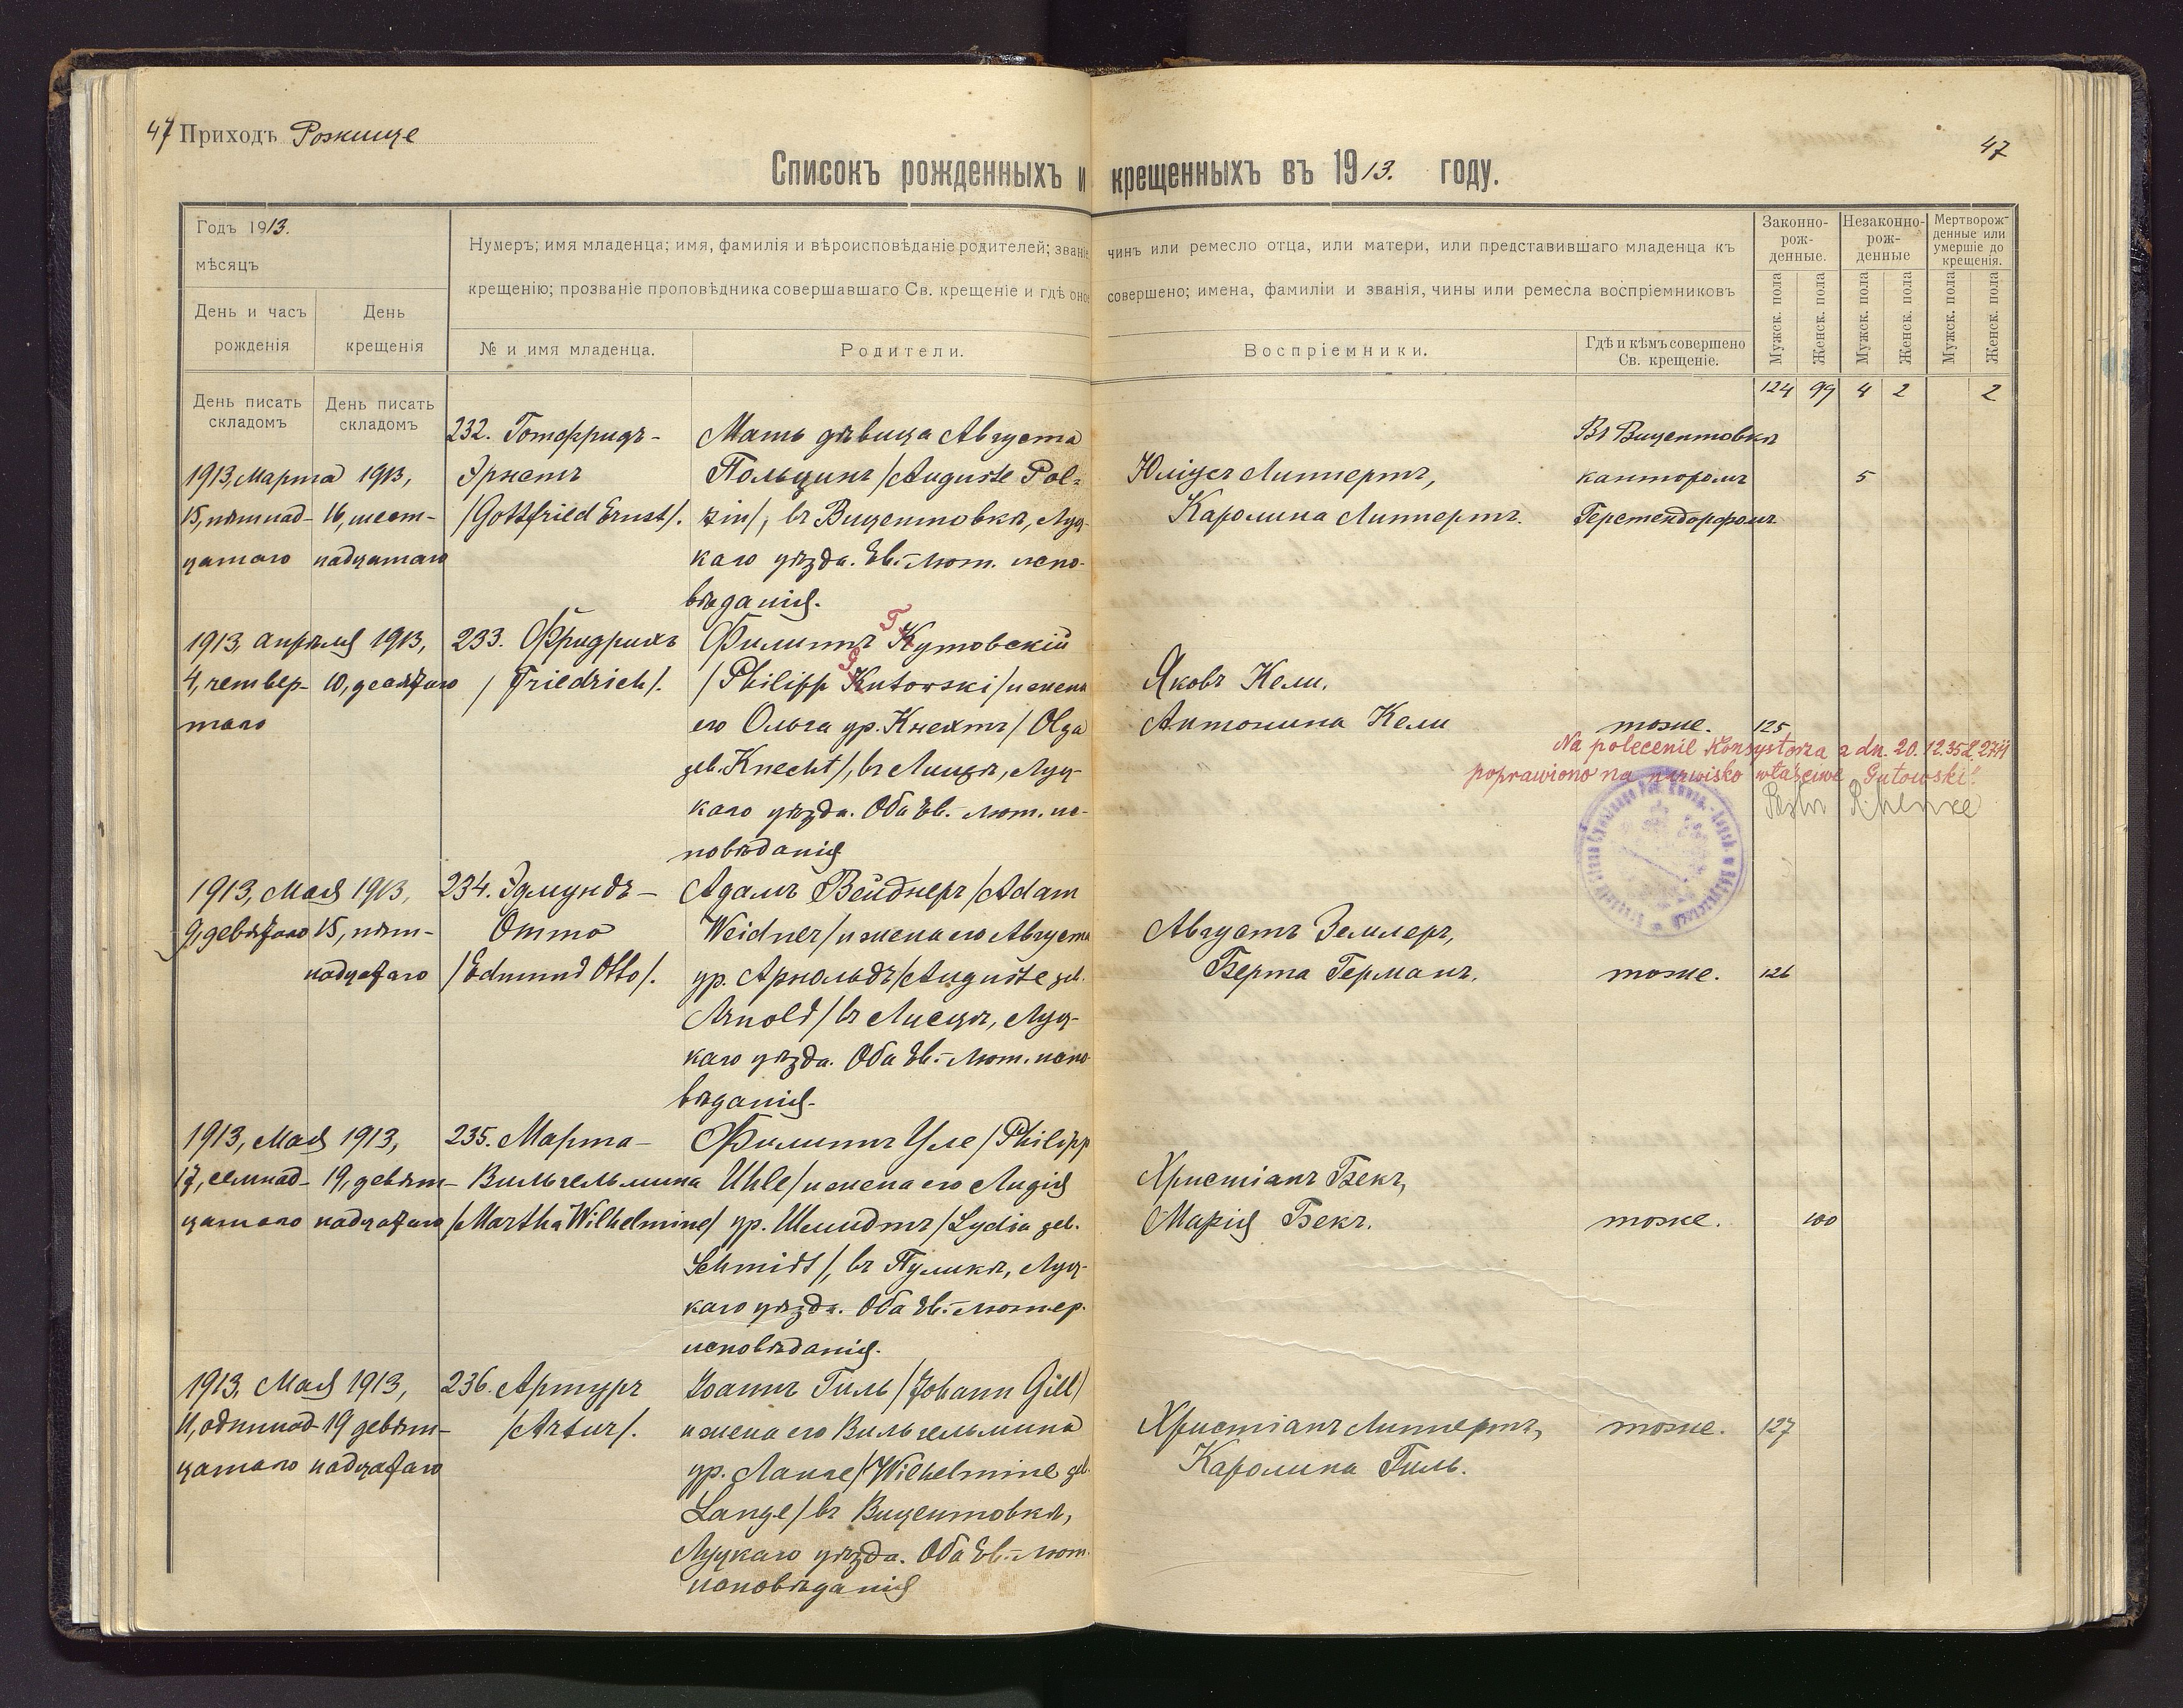 47 Приходъ Рожище
47
Списокъ рожденныхъ и крещенныхъ въ 1913. году.
Годъ 1913.
мѣсяцъ
День и часъ рожденія
День крещенія
Нумеръ; имя младенца; имя, фамилія и вѣроисповѣданіе родителей; званіе чинъ или ремесло отца, или матери, или представившаго младенца къ
крещенію; прозваніе проповѣдника совершавшаго Св. крещеніе и гдѣ оно совершено; имена, фамиліи и званія, чины или ремесла воспріемниковъ
№ и имя младенца.
Родители.
Воспріемники.
Гдѣ и кѣмъ совершено Св. крещеніе.
Законно-рож-денные.
Незаконно-рож-денные
Мертворож-денные или умершіе до крещенія.
Мужск. пола
Женск. пола
Мужск. пола
Женск. пола
Мужск. пола
Женск. пола
День писать складомъ
День писать складомъ
124 99 4 2 2
1913, Марта 1913,
15, пятнад- 16, шест-
цатаго надцатаго
232. Готфридъ-
Эрнстъ
/Gottfried Ernst/.
Мать дѣвица Августа
Польцинъ /Auguste Pol-
zin/, въ Вицентовкѣ, Луц-
каго уѣзда. Ев.-Лют. испо-
вѣданія.
Юліусъ Липпертъ,
Каролина Липпертъ.
Въ Вицентовкѣ
канторомъ
Герстендорфомъ
5
1913, Апрѣля 1913,
4, четвер- 10, десятаго
таго
233. Фридрихъ
/Friedrich/.
Г
Филиппъ Кутовскій
G
/Philipp Kutowski/ и жена
его Ольга ур. Кнехтъ /Olga
geb. Knecht/, въ Лищѣ, Луц-
каго уѣзда. Оба Ев.-Лют. ис-
повѣданія
Яковъ Кели,
Антонина Кели
тоже. 125
Na polecenie Konsystorza z dn. 20.12.35 L 2744
poprawiono na nazwisko właściwe "Gutowski".
Pastor
1913, Мая 1913,
9, девятаго 15, пят-
надцатаго
234. Эдмундъ-
Отто
/Edmund Otto/.
Адамъ Вейднеръ /Adam
Weidner/ и жена его Августа
ур. Арнольдъ /Auguste geb.
Arnold/ въ Лисцѣ, Луц-
каго уѣзда. Оба Ев.-Лют. испо-
вѣданія.
Августъ Земмеръ,
Берта Германъ.
тоже. 126
1913, Мая 1913,
17, семнад- 19, девят-
цатаго надцатаго
235. Марта-
Вильгельмина
/Martha Wilhelmine/
Филиппъ Уле /Philipp
Uhle/ и жена его Лидія
ур. Шмидтъ /Lydia geb.
Schmidt/, въ Пуликѣ, Луц-
каго уѣзда. Оба Ев.-Лютер.
исповѣданія.
Христіанъ Бекъ,
Марія Бекъ.
тоже. 100
1913, Мая 1913,
11, одиннад- 19 девят-
цатаго надцатаго
236. Артуръ
/Artur/.
Іоаннъ Гиль /Johann Gill/
и жена его Вильгельмина
ур. Ланге /Wilhelmine geb.
Lange/ въ Вицентовкѣ,
Луцкаго уѣзда. Оба Ев.-Лют.
исповѣданія
Христіанъ Липпертъ,
Каролина Гиль.
тоже. 127